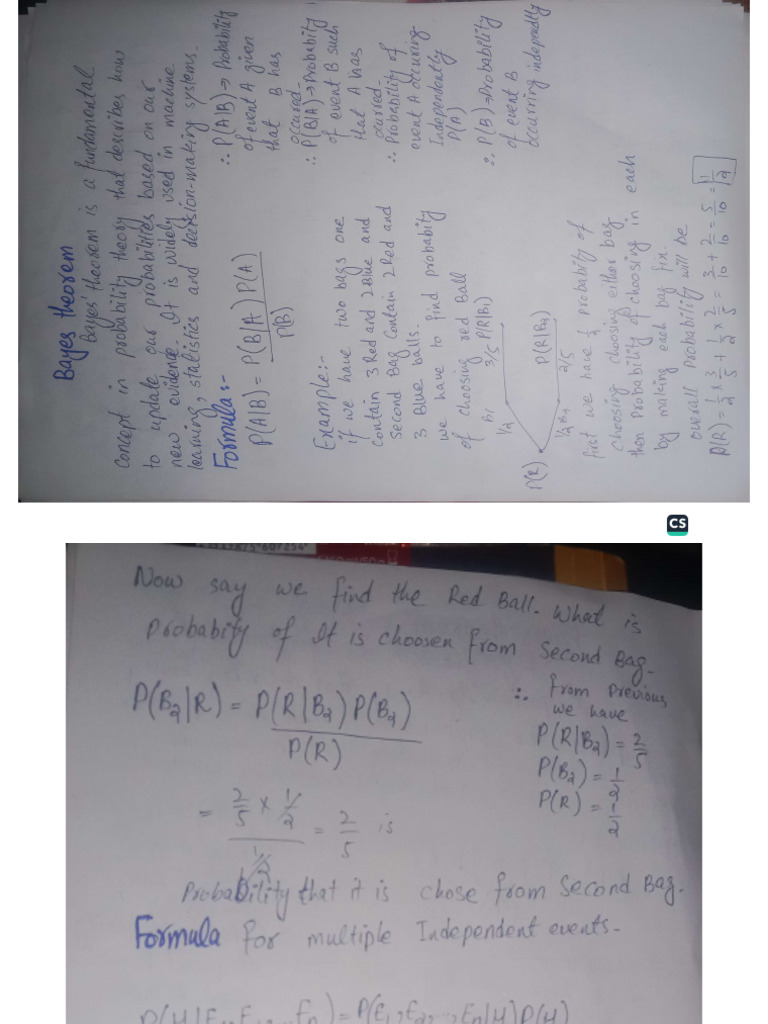 Bayes theorem
Bayes' theorem is a fundamental
concept in probability theory that describes how
to update our probabilities based on our
new evidence. It is widely used in machine
learning, statistics and decision-making systems.
Formula:-
P(A|B) = P(B|A) P(A)
P(B)
∴ P(A|B) → Probability
of event A given
that B has
occured.
∴ P(B|A) → Probabity
of event B such
that A has
ocurred.
∴ Probability of
event A occuring
Independently
P(A)
∴ P(B) → Probability
of event B
occurring independly
Example:-
if we have two bags one
contain 3 Red and 2 Blue and
second Bag contain 2 Red and
3 Blue balls.
we have to find probabity
of choosing red Ball
1/2 B1 3/5 P(R|B1)
P(R)
P(R|B2)
1/2 B2 2/5
first we have 1/2 probability of
choosing choosing either bag
then Probability of choosing in each
by making each bag fix.
overall Probability will be
P(R) = 1/2 × 3/5 + 1/2 × 2/5 = 3/10 + 2/10 = 5/10 = 1/2
CS
607254
Now say we find the Red Ball. What is
Probabity of It is choosen from Second Bag.
P(B2|R) = P(R|B2) P(B2)
P(R)
∴ from Previous
we have
P(R|B2) = 2/5
P(B2) = 1/2
P(R) = 1/2
= 2/5 × 1/2 = 2/5 is
1/2
Probability that it is chose from Second Bag.
Formula for multiple Independent events-
P(H|E1,E2,...En) = P(E1,E2,...,En|H) P(H)